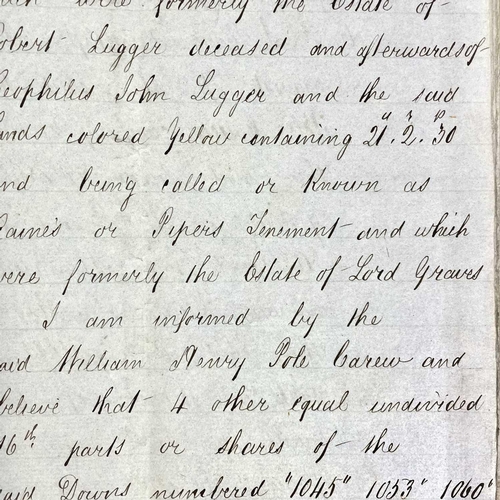 were formerly the Estate of
Robert Lugger deceased and afterwards of
Theophilus John Lugger and the said
lands colored Yellow containing 21ᵃ. 2ʳ. 30ᵖ
and being called or Known as
Raine's or Pipers Tenement and which
were formerly the Estate of Lord Graves
I am informed by the
said William Henry Pole Carew and
believe that 4 other equal undivided
16th parts or shares of the
said Downs numbered "1045" 1053" 1060"